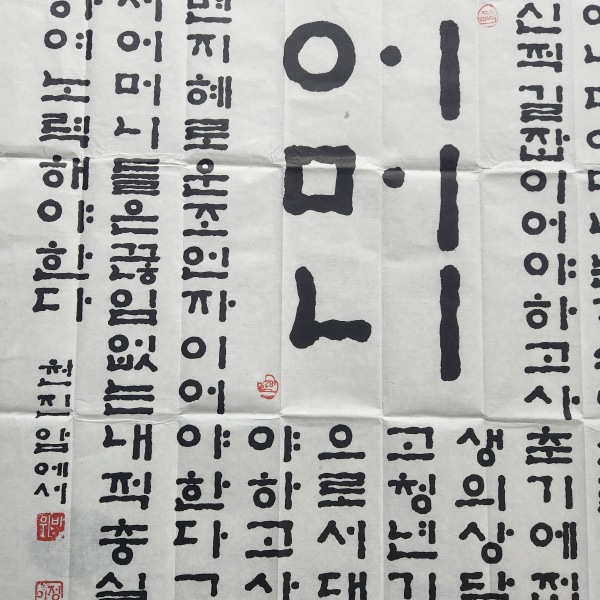 신적길잡이어야하고사춘기에
생의상담
고청년기
어머니
으로서대
야하고사
지혜로운조언자이어야한다그
서어머니들은끊임없는내적충실
여노력해야한다
천진암에서